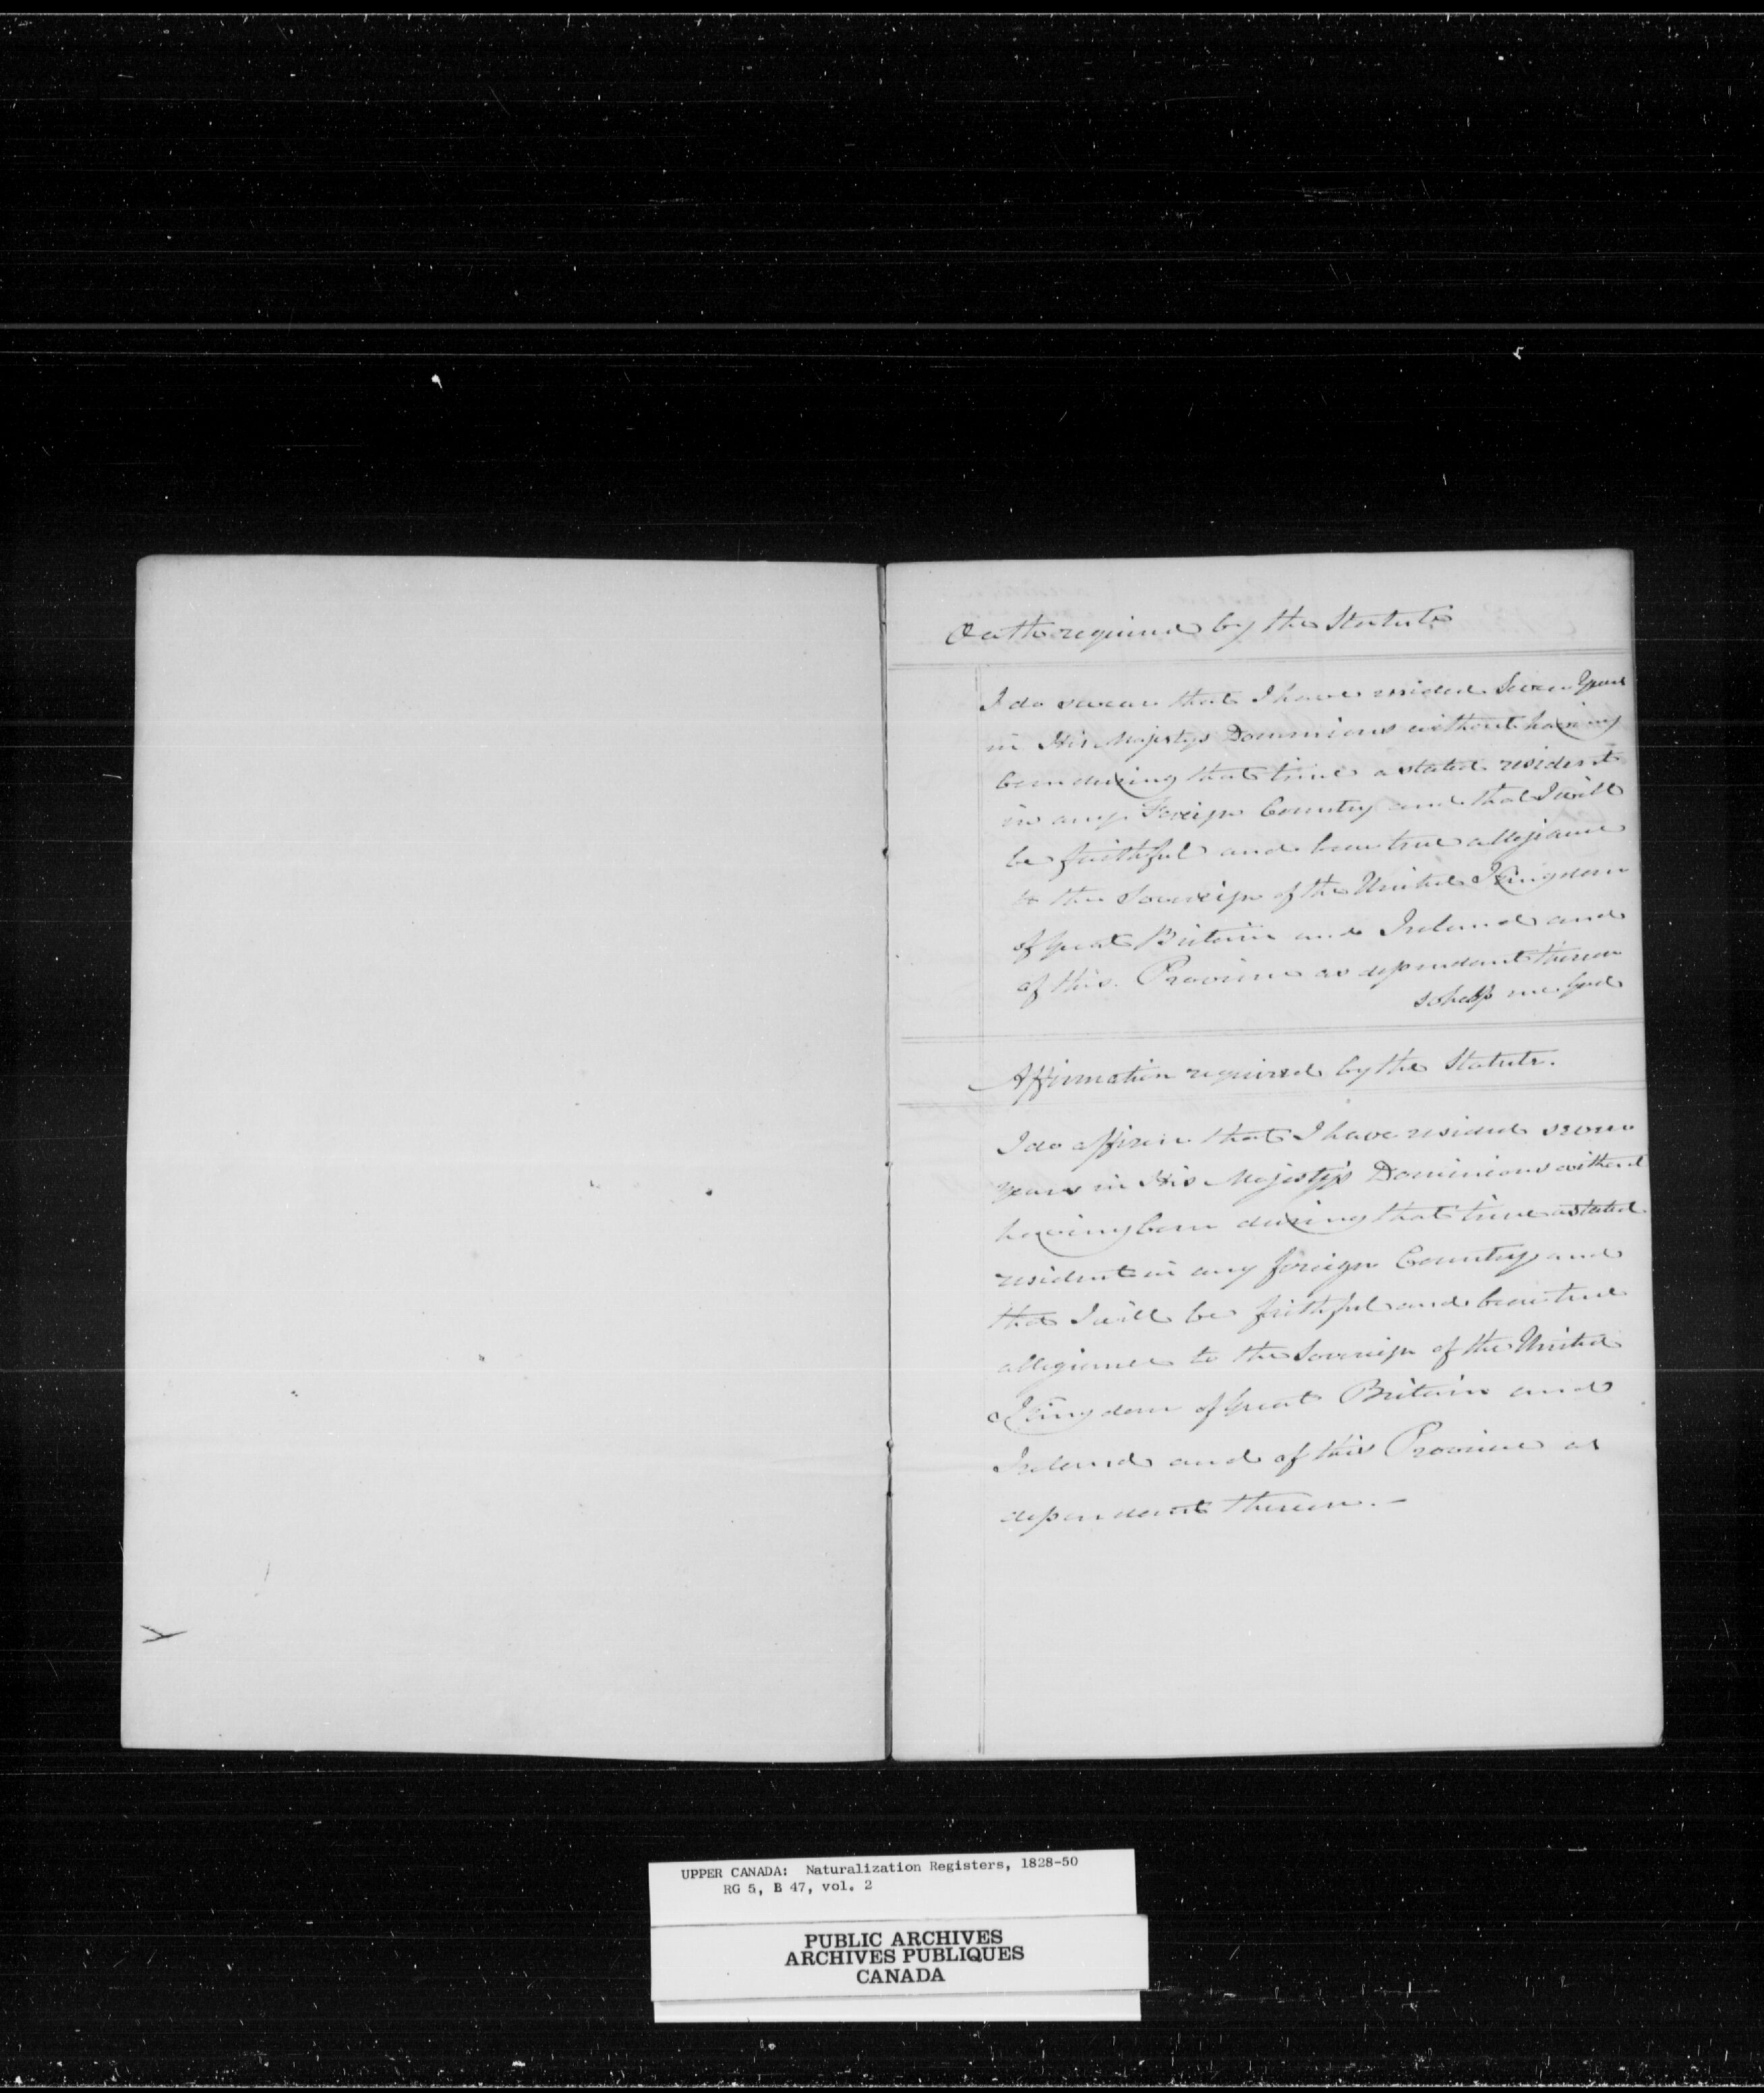 Oath required by the Statute
I do swear that I have resided Seven Years
in His Majestys Dominions without having
been during that time a stated resident
in any Foreign Country and that I will
be faithful and bear true allegiance
to the Sovereign of the United Kingdom
of Great Britain and Ireland and
of this Province as dependant thereon
So help me God
Affirmation required by the Statute.
I do affirm that I have resided seven
years in His Majesty's Dominions without
having been during that time a stated
resident in any foreign Country and
that I will be faithful and bear true
allegiance to the Sovereign of the United
Kingdom of Great Britain and
Ireland and of this Province as
dependant thereon. —
UPPER CANADA: Naturalization Registers, 1828-50
RG 5, B 47, vol. 2
PUBLIC ARCHIVES
ARCHIVES PUBLIQUES
CANADA